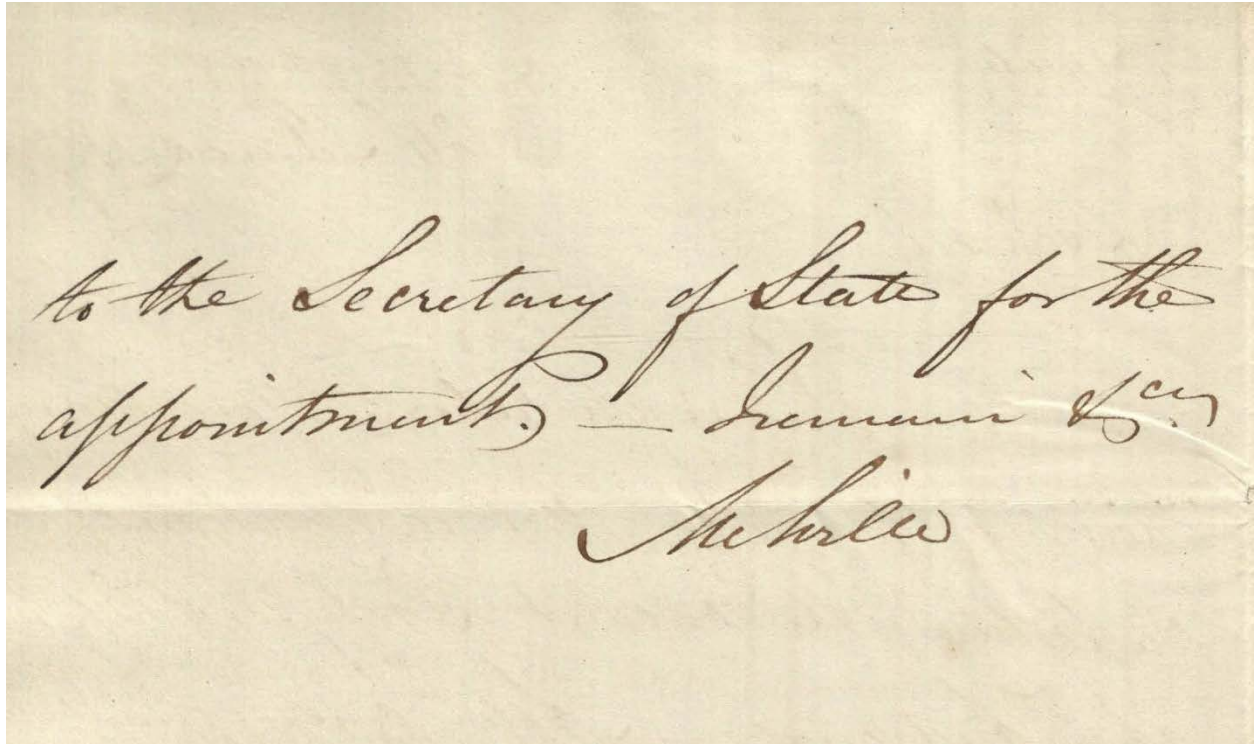 to the Secretary of State for the
appointment. — I remain &cy.
Melville